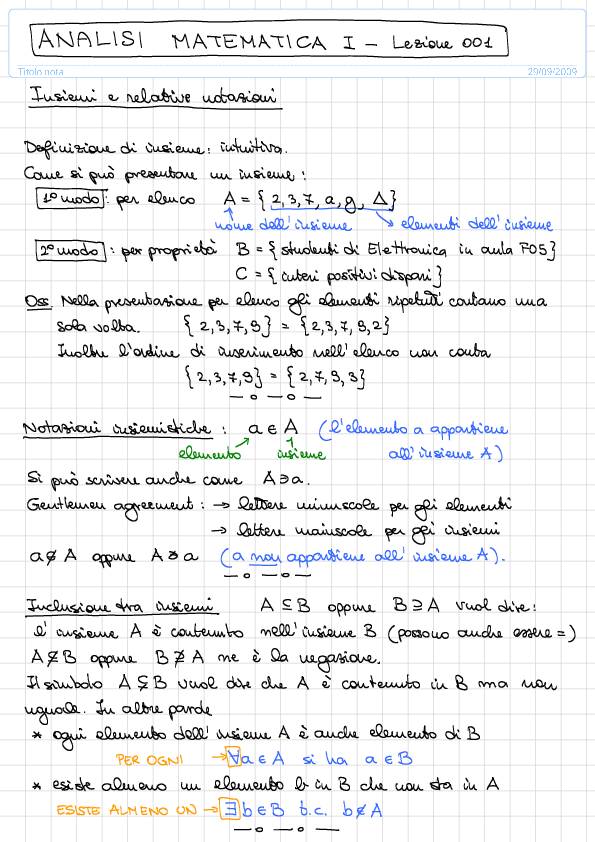 ANALISI MATEMATICA I - Lezione 001
Titolo nota 29/09/2009
Insiemi e relative notazioni
Definizione di insieme: intuitiva.
Come si può presentare un insieme:
1° modo: per elenco A = { 2, 3, 7, a, g, Δ}
nome dell'insieme elementi dell'insieme
2° modo: per proprietà B = { studenti di Elettronica in aula F05}
C = { interi positivi dispari }
Oss. Nella presentazione per elenco gli elementi ripetuti contano una
sola volta. { 2,3,7,9} = {2,3,7,9,2}
Inoltre l'ordine di inserimento nell'elenco non conta
{2,3,7,9} = {2,7,9,3}
— o — o —
Notazioni insiemistiche: a ∈ A (l'elemento a appartiene
elemento insieme all'insieme A)
Si può scrivere anche come A ∋ a.
Gentlemen agreement: → lettere minuscole per gli elementi
→ lettere maiuscole per gli insiemi
a ∉ A oppure A ∌ a (a non appartiene all'insieme A).
— o — o —
Inclusione tra insiemi A ⊆ B oppure B ⊇ A vuol dire:
l'insieme A è contenuto nell'insieme B (possono anche essere =)
A ⊈ B oppure B ⊉ A ne è la negazione.
Il simbolo A ⊊ B vuol dire che A è contenuto in B ma non
uguale. In altre parole
* ogni elemento dell'insieme A è anche elemento di B
PER OGNI → ∀ a ∈ A si ha a ∈ B
* esiste almeno un elemento b in B che non sta in A
ESISTE ALMENO UN → ∃ b ∈ B t.c. b ∉ A
— o — o —